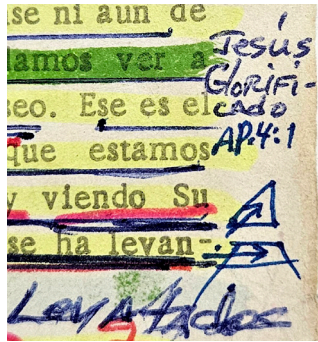 se ni aun de
damos ver a
seo. Ese es el
que estamos
y viendo Su
se ha levan-
Jesús
Glorifi-
cado
AP.4:1
Levantados